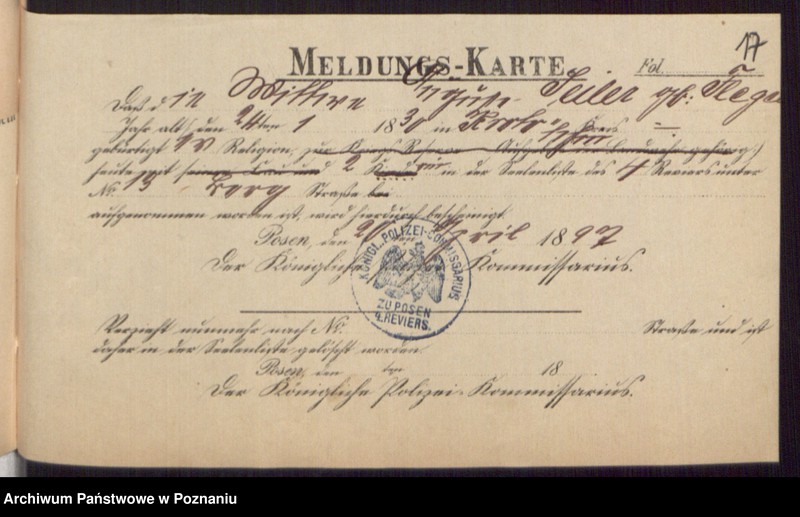 17
MELDUNGS-KARTE Fol.
Daß d in Wittwe Auguste Seiler gb:
Jahr alt, den 24ten 1 1830 in Kreis
gebürtigt ev Religion, zur Kriegs-Reserve
heute mit seiner Frau und 2 Kind in der Seelenliste des 4 Reviers unter
No. 13 Berg Straße bei
aufgenommen worden ist, wird hierdurch bescheinigt.
Posen, den 20 ten April 1897
Der Königliche Kommissarius.
KÖNIGL. POLIZEI-COMMISSARIUS
ZU POSEN
4. REVIERS.
Verzieht nunmehr nach No. Straße und ist
daher in der Seelenliste gelöscht worden
Posen, den ten 18
Der Königliche Polizei-Kommissarius.
Archiwum Państwowe w Poznaniu